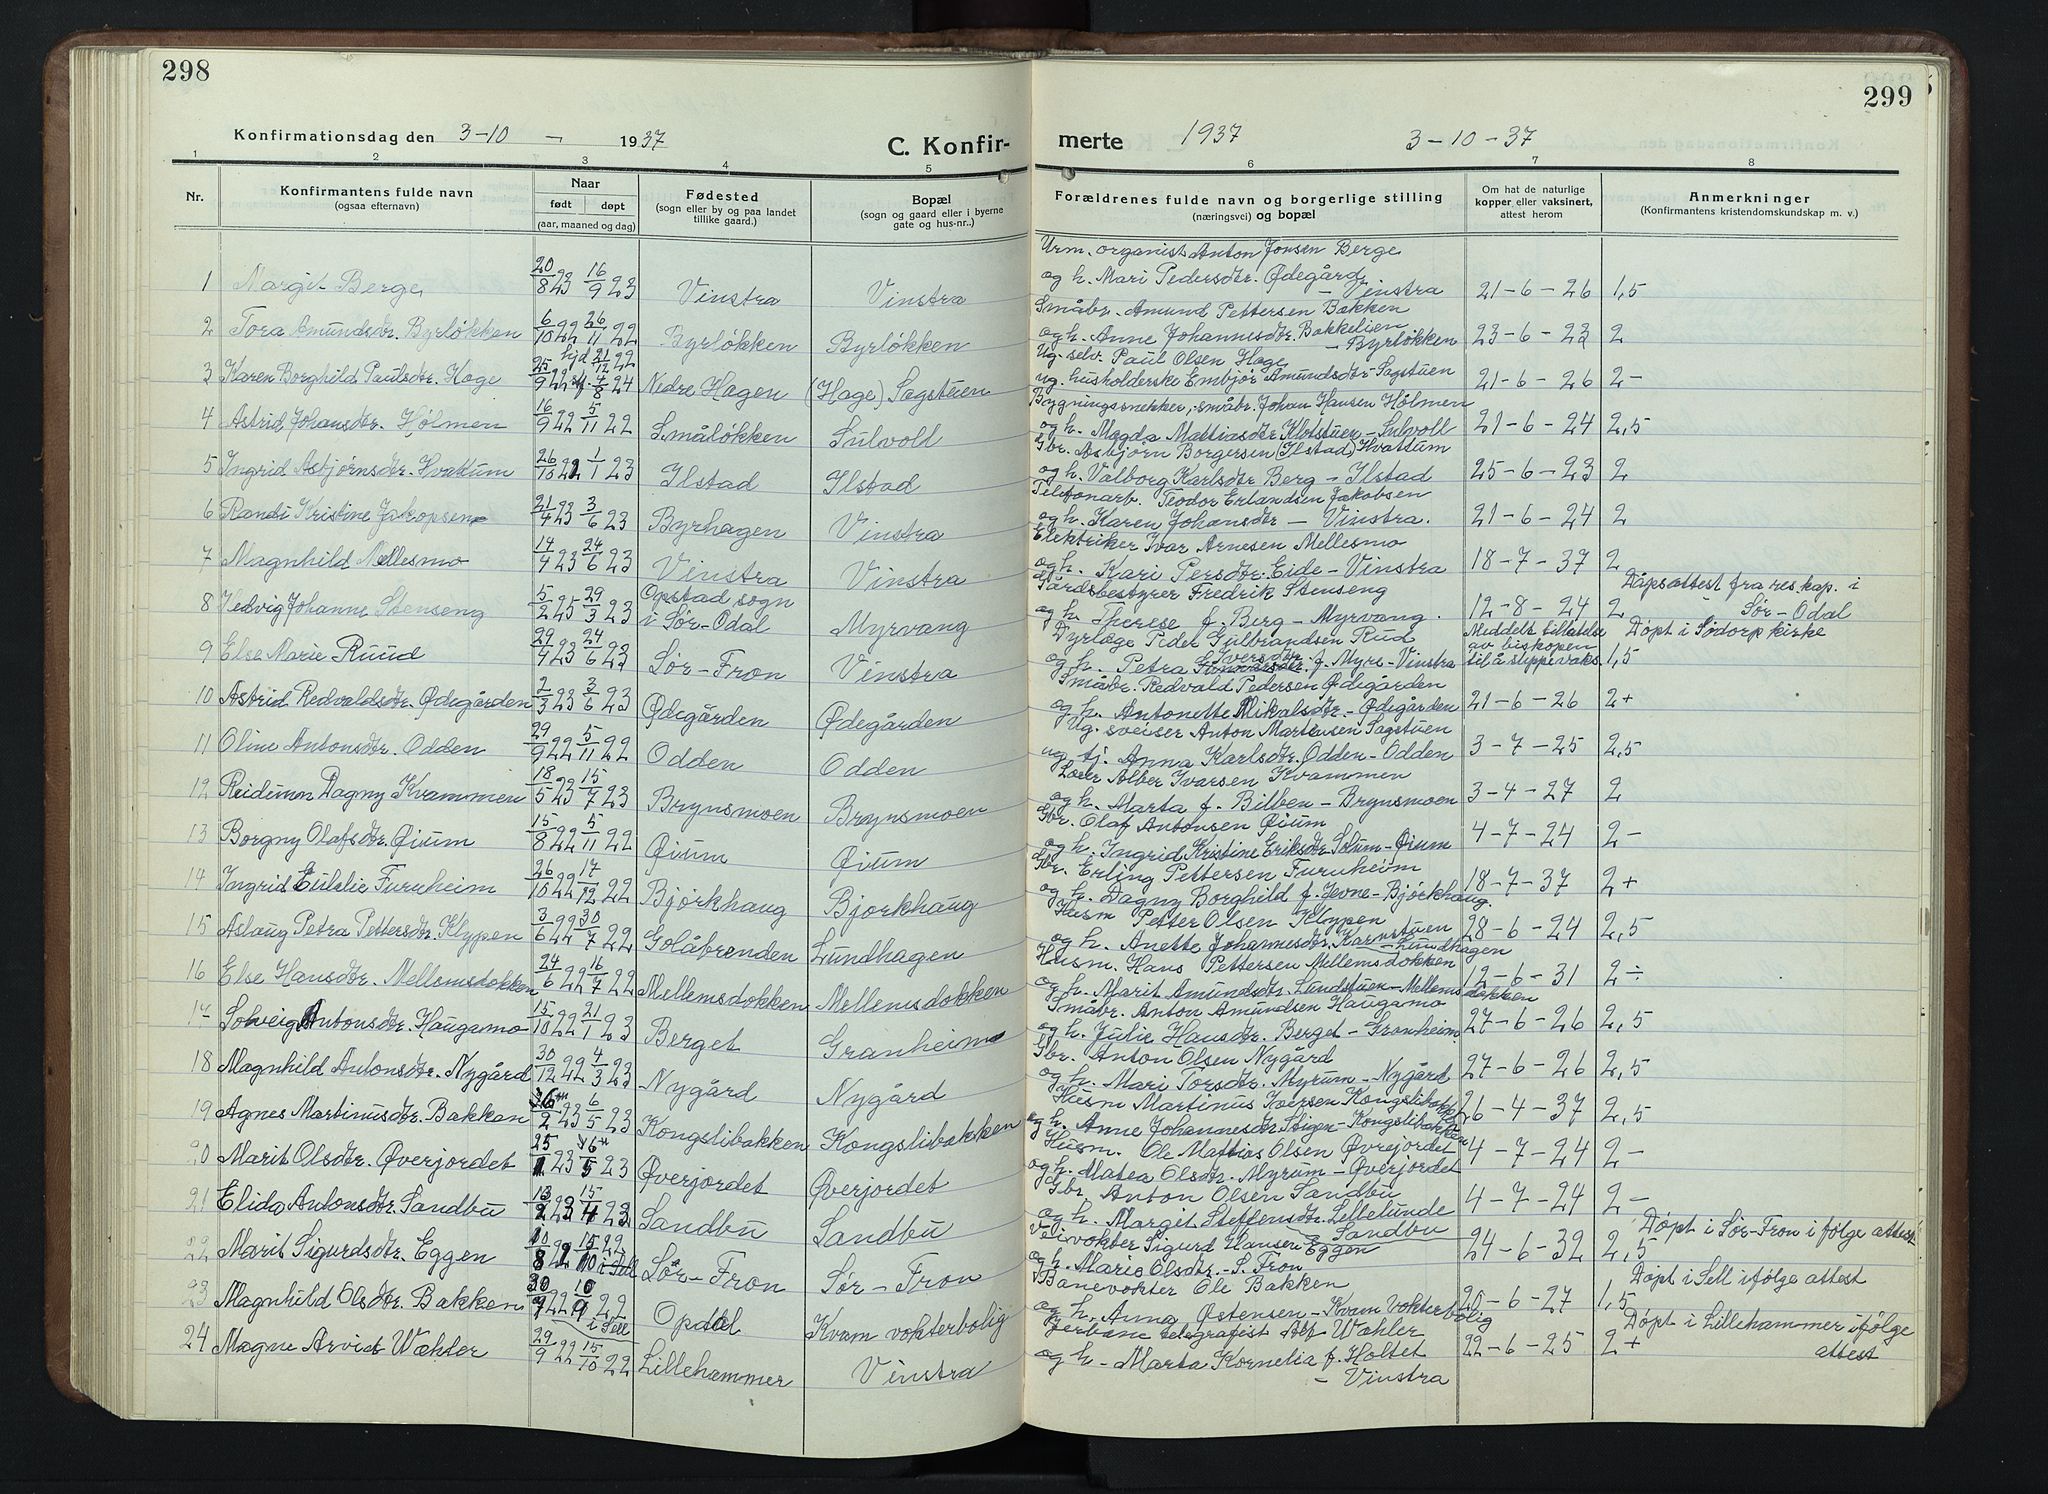 298
Konfirmationsdag den 3-10 - 1937
C. Konfir-
1 2 3 4 5
Nr.
Konfirmantens fulde navn
(ogsaa efternavn)
Naar
født døpt
(aar, maaned og dag)
Fødested
(sogn eller by og paa landet
tillike gaard.)
Bopæl
(sogn og gaard eller i byerne
gate og hus-nr..)
1 Margit Berge 20/8 23 16/9 23 Vinstra Vinstra
2 Tora Amundsdtr. Byrløkken 6/10 22 26/11 22 Byrløkken Byrløkken
hjd 21/12 22
3 Karen Borghild Paulsdtr. Hage 25/9 22 4/8 24 Nedre Hagen (Hage) Sagstuen
4 Astrid Johansdtr. Hølmen 16/9 22 5/11 22 Småløkken Sulvoll
5 Ingrid Asbjørnsdtr. Hvattum 26/10 22 1/1 23 Ilstad Ilstad
6 Randi Kristine Jakopsen 21/4 23 3/6 23 Byrhagen Vinstra
7 Magnhild Mellesmo 14/4 23 24/6 23 Vinstra Vinstra
8 Hedvig Johanne Stenseng 5/2 25 29/3 23 Opstad sogn
i Sør-Odal Myrvang
9 Else Marie Ruud 29/4 23 24/6 23 Sør-Fron Vinstra
10 Astrid Redvaldsdtr. Ødegården 2/3 23 3/6 23 Ødegården Ødegården
11 Oline Antonsdtr. Odden 29/9 22 5/11 22 Odden Odden
12 Reidunn Dagny Kvammen 18/5 23 15/7 23 Brynsmoen Brynsmoen
13 Borgny Olafsdtr. Øium 15/8 22 5/11 22 Øium Øium
14 Ingrid Eulalie Furuheim 26/10 22 17/12 22 Bjørkhaug Bjørkhaug
15 Aslaug Petra Pettersdtr. Klypen 3/6 22 30/7 22 Golåbrenden Lundhagen
16 Else Hansdtr. Mellemsdokken 24/6 22 16/7 22 Mellemsdokken Mellemsdokken
17 Solveig Antonsdtr. Haugamo 15/10 22 21/1 23 Berget Granheim
18 Magnhild Antonsdtr. Nygård 30/12 22 4/3 23 Nygård Nygård
19 Agnes Martinusdtr. Bakken 2 23 6/5 23 Kongslibakken Kongslibakken
20 Marit Olsdtr. Øverjordet 25/1 23 5 23 Øverjordet Øverjordet
21 Elida Antonsdtr. Sandbu 13/2 23 15/4 23 Sandbu Sandbu
22 Marit Sigurdsdtr. Eggen 10/8 15/10 22 Sør-Fron Sør-Fron
23 Magnhild Olsdtr. Bakken 30/7 22 10/9 22 Opdal Kvam vokterbolig
i Sell
24 Magne Arvid Wæhler 29/9 22 15/10 22 Lillehammer Vinstra
299
merte 1937 3-10-37
6 7 8
Forældrenes fulde navn og borgerlige stilling
(næringsvei) og bopæl
Om hat de naturlige
kopper eller vaksinert,
attest herom
Anmerkninger
(Konfirmantens kristendomskundskap m. v.)
Urm. organist Anton Jonsen Berge
og h. Mari Pedersdtr. Ødegård
- Vinstra 21-6-26 1,5
Småbr. Amund Pettersen Bakken
og h. Anne Johannesdtr. Bakkelien
- Byrløkken 23-6-23 2
Ug. selv. Paul Olsen Hage
ug. husholderske Embjør Amundsdtr Sagstuen 21-6-26 2-
Bygningssnekker, småbr. Johan Hansen Hølmen
og h. Magda Mattiasdtr Klotstuen - Sulvoll 21-6-24 2,5
Gbr. Asbjørn Borgersen (Ilstad) Hvattum
og h. Valborg Karlsdtr Berg - Ilstad 25-6-23 2
Telefonarb. Teodor Erlandsen Jakobsen
og h. Karen Johansdtr - Vinstra. 21-6-24 2
Elektriker Ivar Arnesen Mellesmo
og h. Kari Persdtr. Eide - Vinstra 18-7-37 2
Gårdsbestyrer Fredrik Stenseng Dåpsattest fra res. kap. i
og h. Therese f. Berg - Myrvang. 12-8-24 2 Sør-Odal
Dyrlæge Peder Gulbrandsen Rud Meddelt tillatelse Døpt i Sødorp kirke
Iversdtr. av biskopen
og h. Petra f. Myre - Vinstra til å slippe vaks. 1,5
Småbr. Redvald Pedersen Ødegården
og h. Antonette Mikalsdtr. - Ødegården 21-6-26 2+
Ug. sveiser Anton Martinsen Sagstuen
ug. tj. Anna Karlsdtr. Odden - Odden 3-7-25 2,5
Leier Alber Ivarsen Kvammen
og h. Marta f. Bilben - Brynsmoen 3-4-27 2
Gbr. Olaf Antonsen Øium
og h. Ingrid Kristine Eriksdtr Solum - Øium 4-7-24 2-
Gbr. Erling Pettersen Furuheim
og h. Dagny Borghild f. Jevne - Bjørkhaug. 18-7-37 2+
Husm Petter Olsen Klypen
og h. Anette Johannesdtr. Karnstuen 28-6-24 2,5
- Lundhagen
Husm. Hans Pettersen Mellemsdokken
og h. Marit Amundsdtr. Lundstuen - Mellemsdokken 12-6-31 2÷
Småbr. Anton Amundsen Haugamo
og h. Julie Hansdtr. Berget - Granheim. 27-6-26 2,5
Gbr. Anton Olsen Nygård
og h. Mari Torsdtr. Myrum - Nygård 27-6-26 2,5
Husm Martinus Iversen Kongslibakken
og h. Anne Johannesdtr. Stigen - Kongslibakken 26-4-37 2,5
Husm. Ole Mattias Olsen Øverjordet
og h. Matea Olsdtr. Myrum - Øverjordet 4-7-24 2-
Gbr. Anton Olsen Sandbu
og h. Margit Steffensdtr. Lillelunde 4-7-24 2-
- Sandbu
Veivokter Sigurd Hansen Eggen Døpt i Sør-Fron i følge attest
og h. Marie Olsdtr. - S. Fron 24-6-32 2,5
Banevokter Ole Bakken Døpt i Sell ifølge attest
og h. Anna Østensen - Kvam vokterbolig 20-6-27 1,5
Jerbane telegrafist Alf Wæhler Døpt i Lillehammer ifølge
og h - Marta Kornelia f. Holtet 22-6-25 2+ attest
- Vinstra